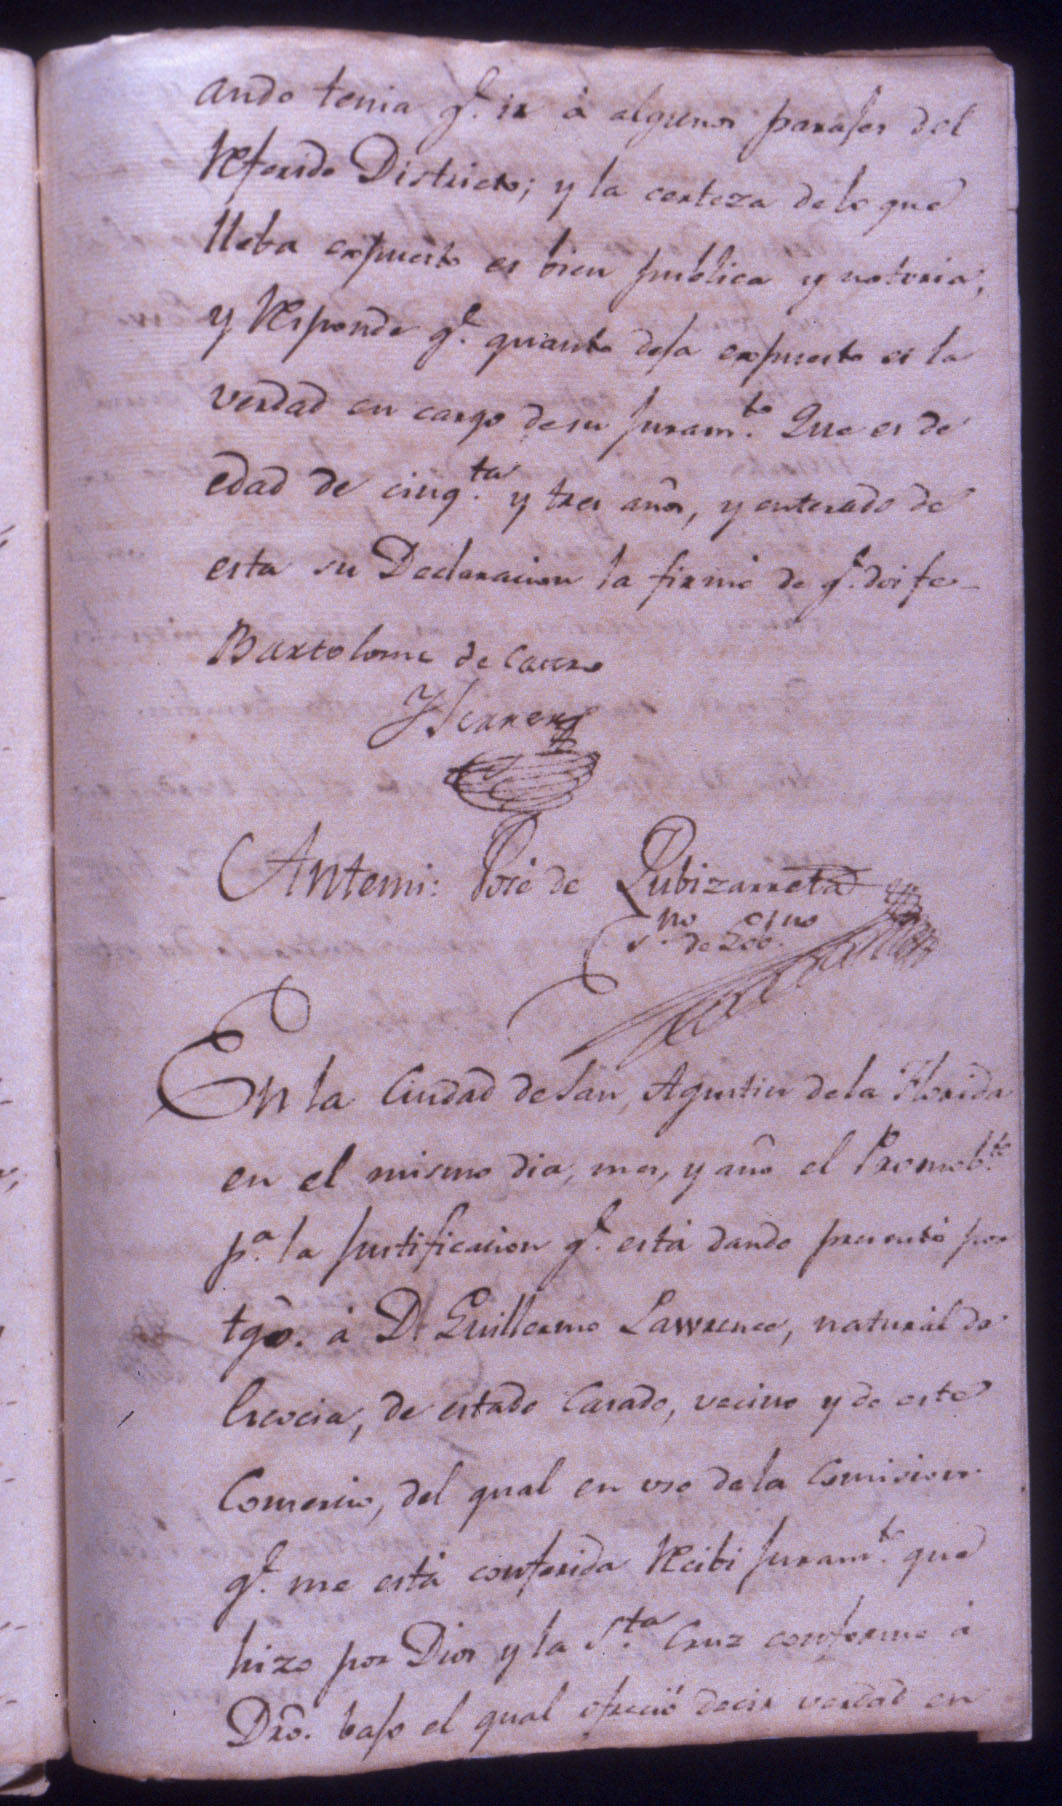 ando tenia q.e ir á algunos parajes del
Referido Districto; y la certeza de lo que
lleba expuesto es bien publica y notoria,
y Responde q.e quanto deja expuesto es la
verdad en cargo de su juram.to Que es de
edad de cinq.ta y tres años, y enterado de
esta su Declaracion la firmó de q.e doi fe
Bartolome de Castro
y Ferrer
Antemi: José de Zubizarreta
s.no de Gob.no
En la Ciudad de San Agustin de la Florida
en el mismo dia, mes, y año el Promob.te
p.a la justificacion q.e está dando presentó por
tgo. á D. Guillermo Lawrence, natural de
Escocia, de estado Casado, vecino y de este
Comercio, del qual en uso de la Comision
q.e me está conferida Recibi juram.to que
hizo por Dios y la S.ta Cruz conforme á
Dro. bajo el qual ofreció decir verdad en